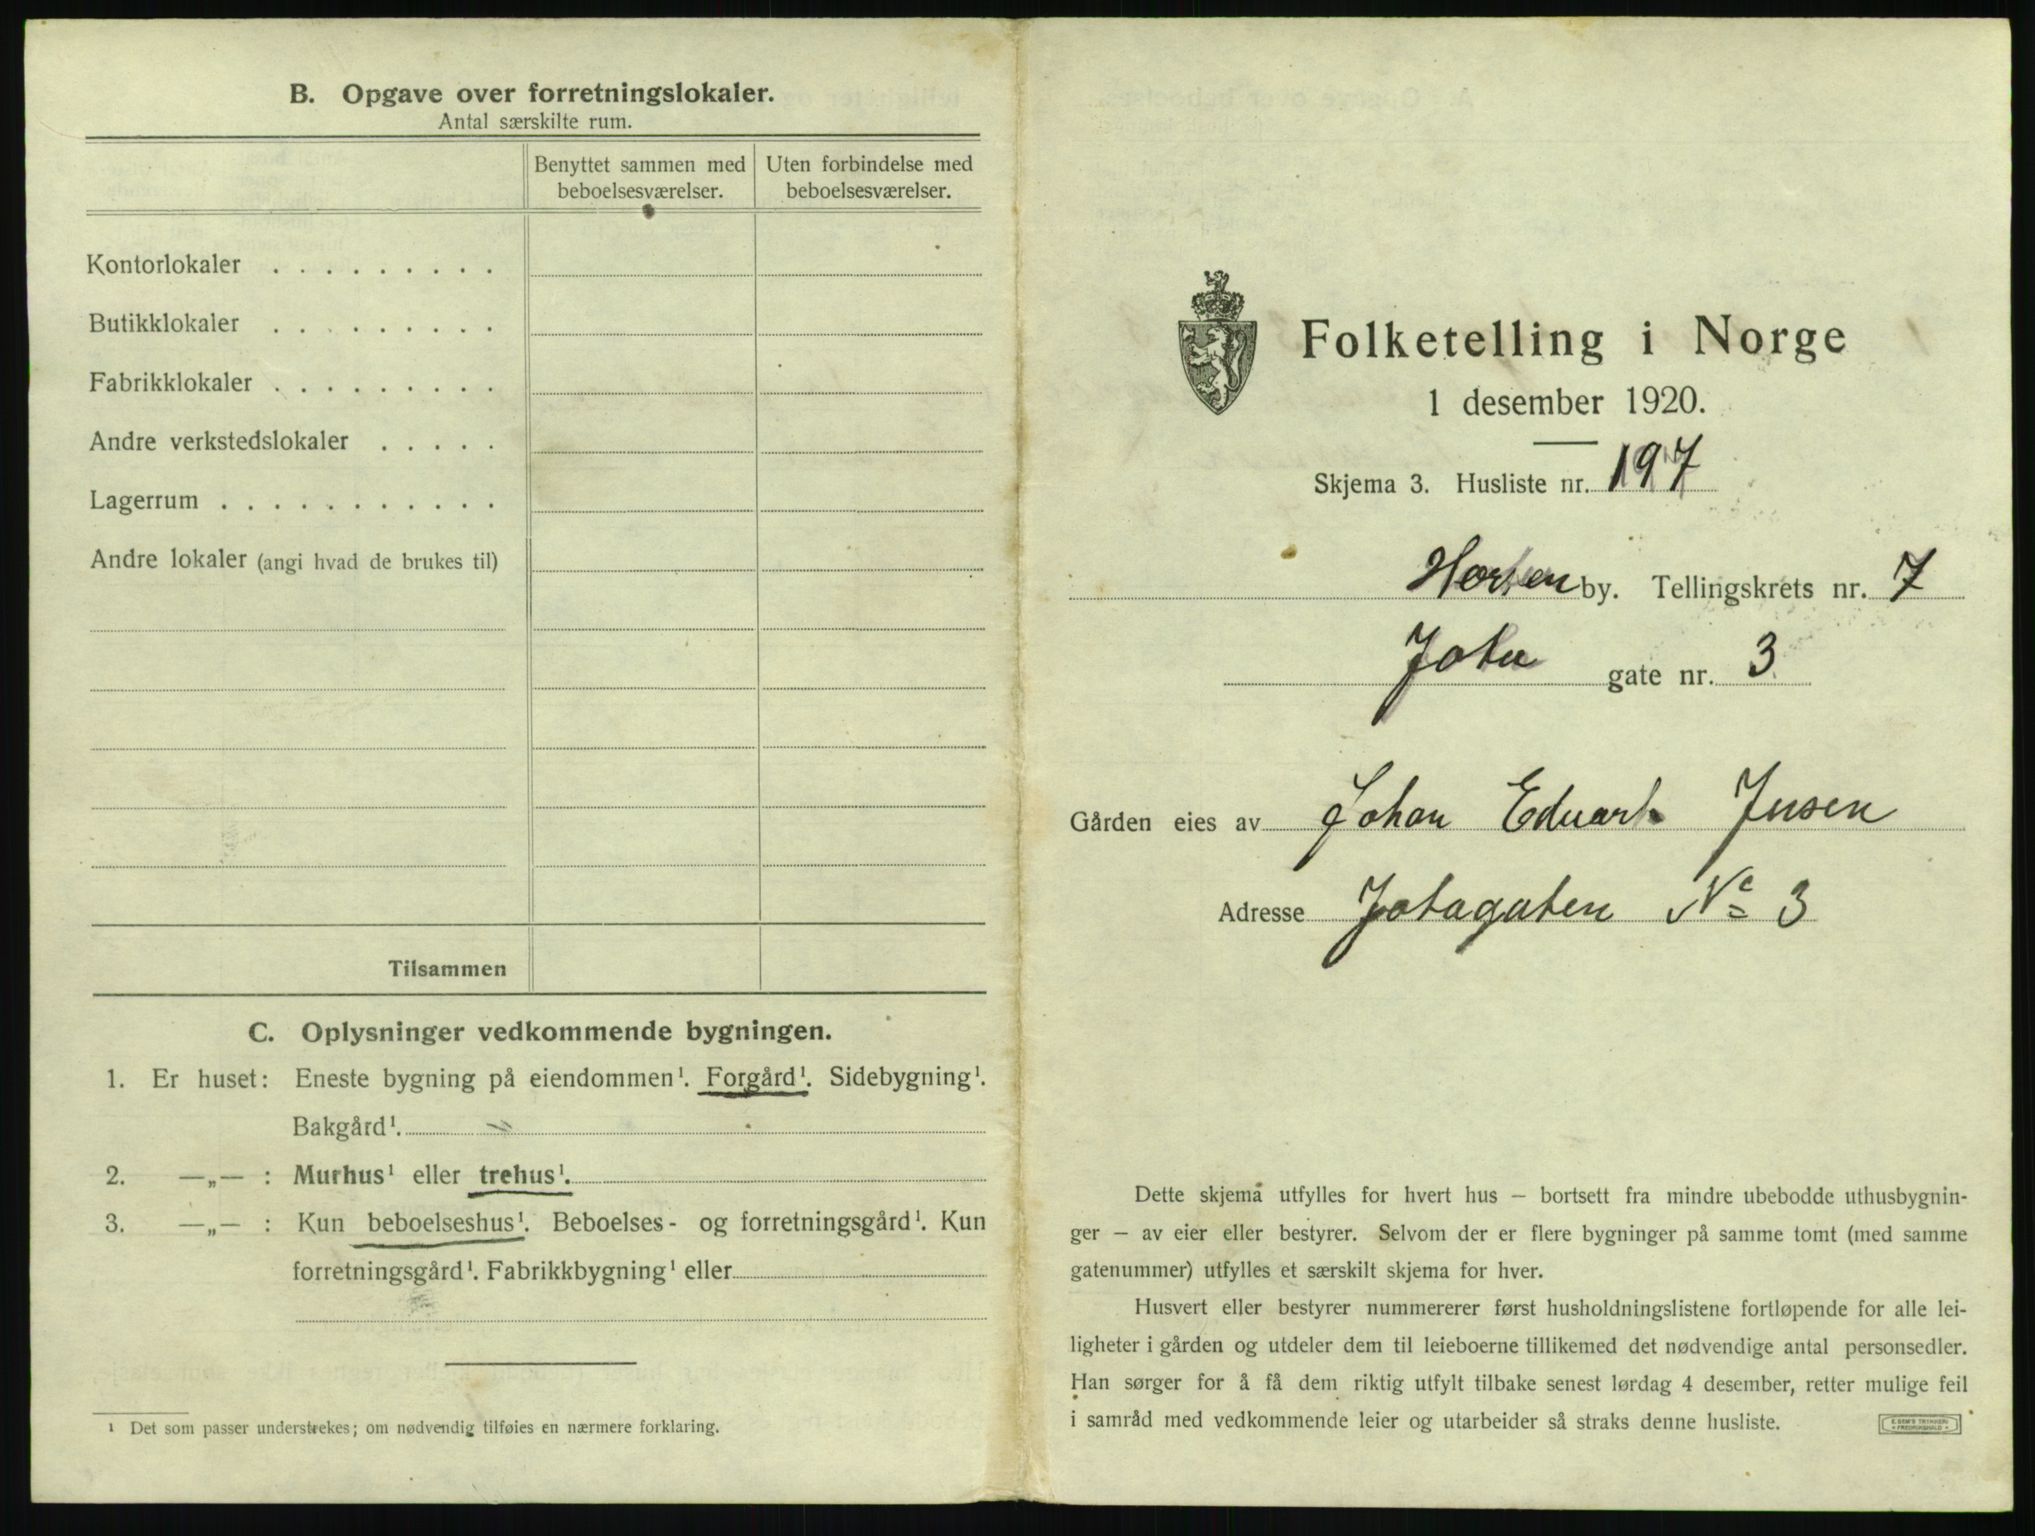 B. Opgave over forretningslokaler.
Antal særskilte rum.
Benyttet sammen med beboelsesværelser.
Uten forbindelse med beboelsesværelser.
Kontorlokaler . . . . . . . . .
Butikklokaler . . . . . . . . .
Fabrikklokaler . . . . . . . . .
Andre verkstedslokaler . . . . .
Lagerrum . . . . . . . . . . .
Andre lokaler (angi hvad de brukes til)
Tilsammen
C. Oplysninger vedkommende bygningen.
1. Er huset: Eneste bygning på eiendommen¹. Forgård¹. Sidebygning¹.
Bakgård¹.
2. —„— : Murhus¹ eller trehus¹.
3. —„— : Kun beboelseshus¹. Beboelses- og forretningsgård¹. Kun
forretningsgård¹. Fabrikkbygning¹ eller
¹ Det som passer understrekes; om nødvendig tilføies en nærmere forklaring.
Folketelling i Norge
1 desember 1920.
Skjema 3. Husliste nr. 197
Horten by. Tellingskrets nr. 7
Jota gate nr. 3
Gården eies av Johan Eduard Jnsen
Adresse Jotagaten No 3
Dette skjema utfylles for hvert hus – bortsett fra mindre ubebodde uthusbygnin-
ger – av eier eller bestyrer. Selvom der er flere bygninger på samme tomt (med samme
gatenummer) utfylles et særskilt skjema for hver.
Husvert eller bestyrer nummererer først husholdningslistene fortløpende for alle lei-
ligheter i gården og utdeler dem til leieboerne tillikemed det nødvendige antal personsedler.
Han sørger for å få dem riktig utfylt tilbake senest lørdag 4 desember, retter mulige feil
i samråd med vedkommende leier og utarbeider så straks denne husliste.
E. SEM'S TRYKKERI
FREDRIKSHALD